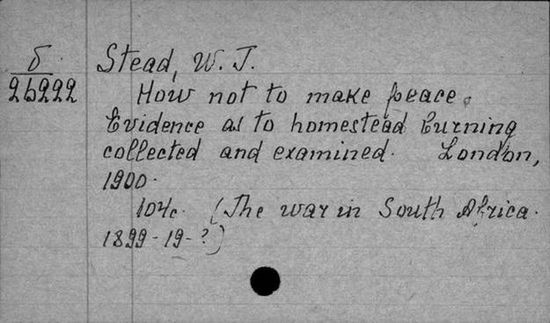 б
26222
Stead, W. T.
How not to make peace.
Evidence as to homestead burning
collected and examined. London,
1900.
104c. (The war in South Africa.
1899-19-?)